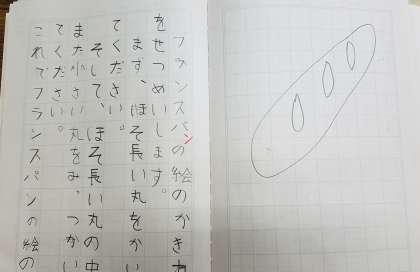 フランスパンの絵のかき方
をせつめいします。
まず、ほそ長い丸をかい
てください。
そして、ほそ長い丸の中
また小さい丸をみ、つかい
てください。
これでフランスパンの絵の